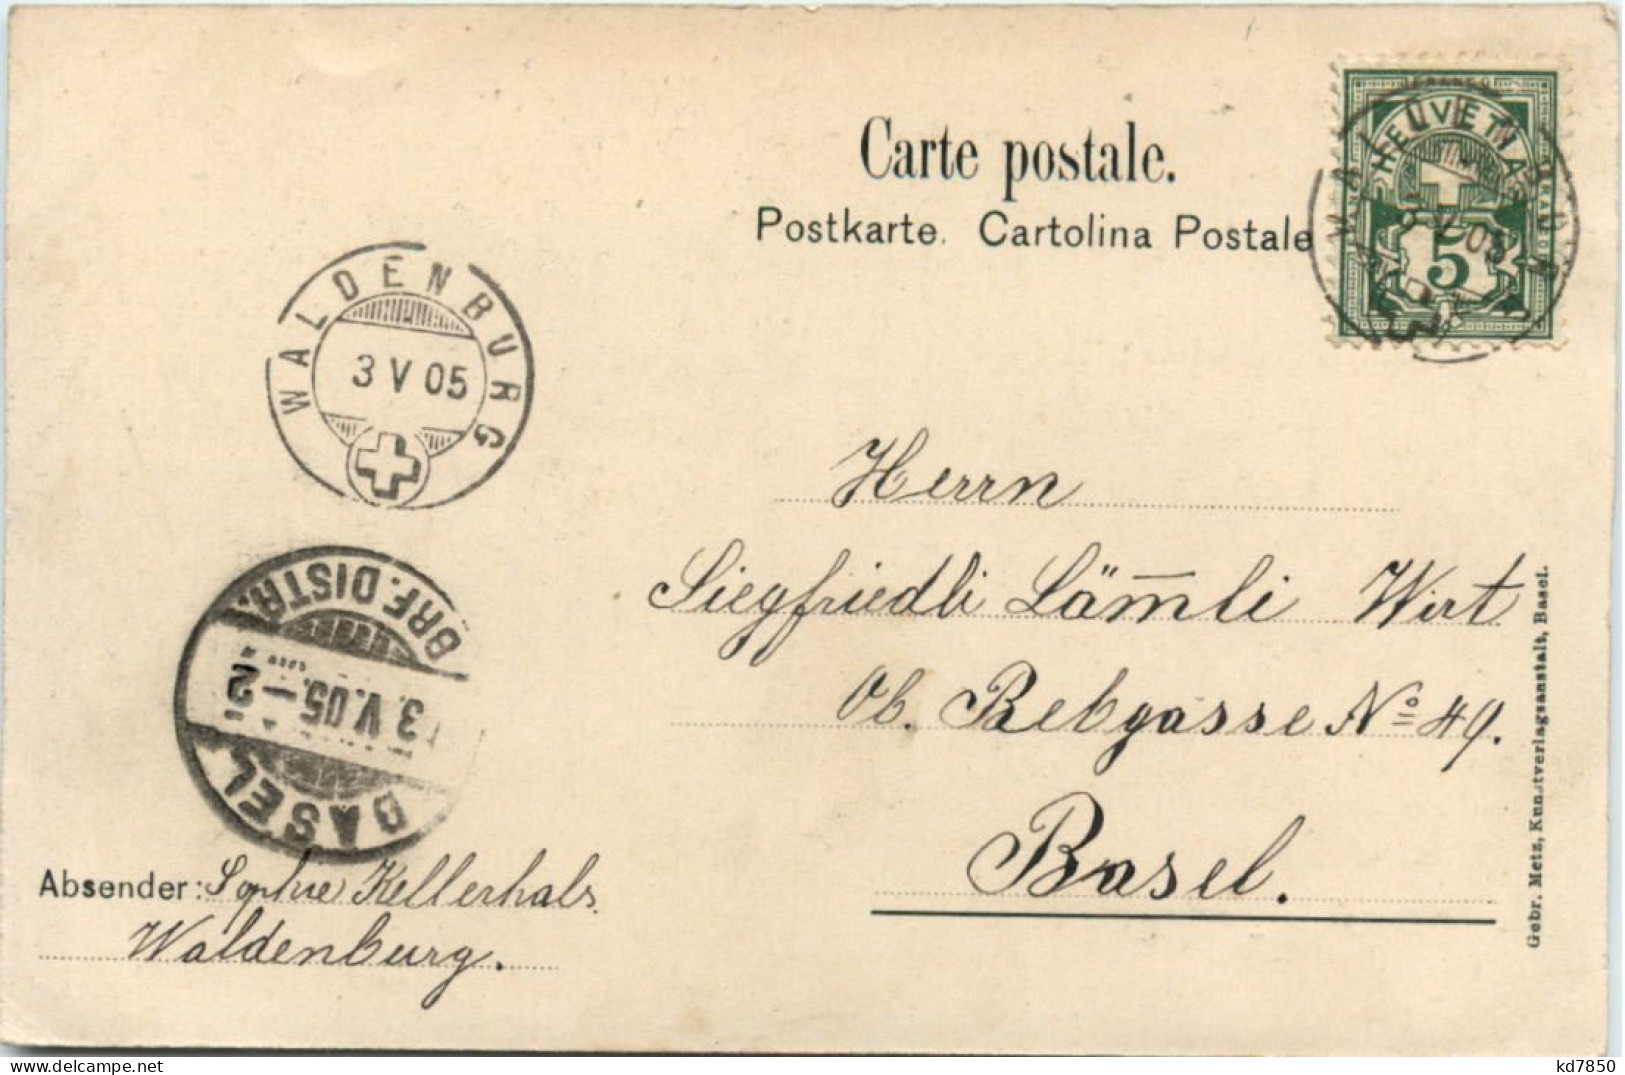 Carte postale.
Postkarte. Cartolina Postale
HELVETIA
5
WALDENBURG
3 V 05
WALDENBURG
3 V 05
BASEL
BRF. DISTR.
3.V.05.-2
Herrn
Siegfriedli Läm̅li Wirt
Ob. Rebgasse No 49.
Basel.
Absender: Sophie Kellerhals.
Waldenburg.
Gebr. Metz, Kunstverlagsanstalt, Basel.
kd7850